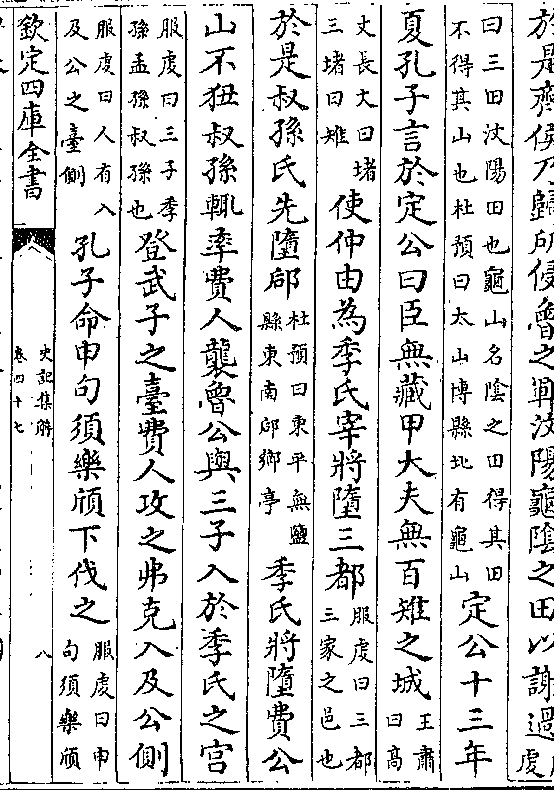 於是齊侯乃歸所侵魯之鄆汶陽龜陰之田以謝過
服虔
曰三田汶陽田也龜山名陰之田得其田
不得其山也杜預曰太山博縣北有龜山
定公十三年
夏孔子言於定公曰臣無藏甲大夫無百雉之城
王肅
曰高
丈長丈曰堵
三堵曰雉
使仲由為季氏宰將墮三都
服虔曰三都
三家之邑也
於是叔孫氏先墮郈
杜預曰東平無鹽
縣東南郈鄉亭
季氏將墮費公
山不狃叔孫輒率費人襲魯公與三子入於季氏之宮
服虔曰三子季
孫孟孫叔孫也
登武子之臺費人攻之弗克入及公側
服虔曰人有入
及公之臺側
孔子命申句須樂頎下伐之
服虔曰申
句須樂頎
欽定四庫全書
史記集解
卷四十七
八